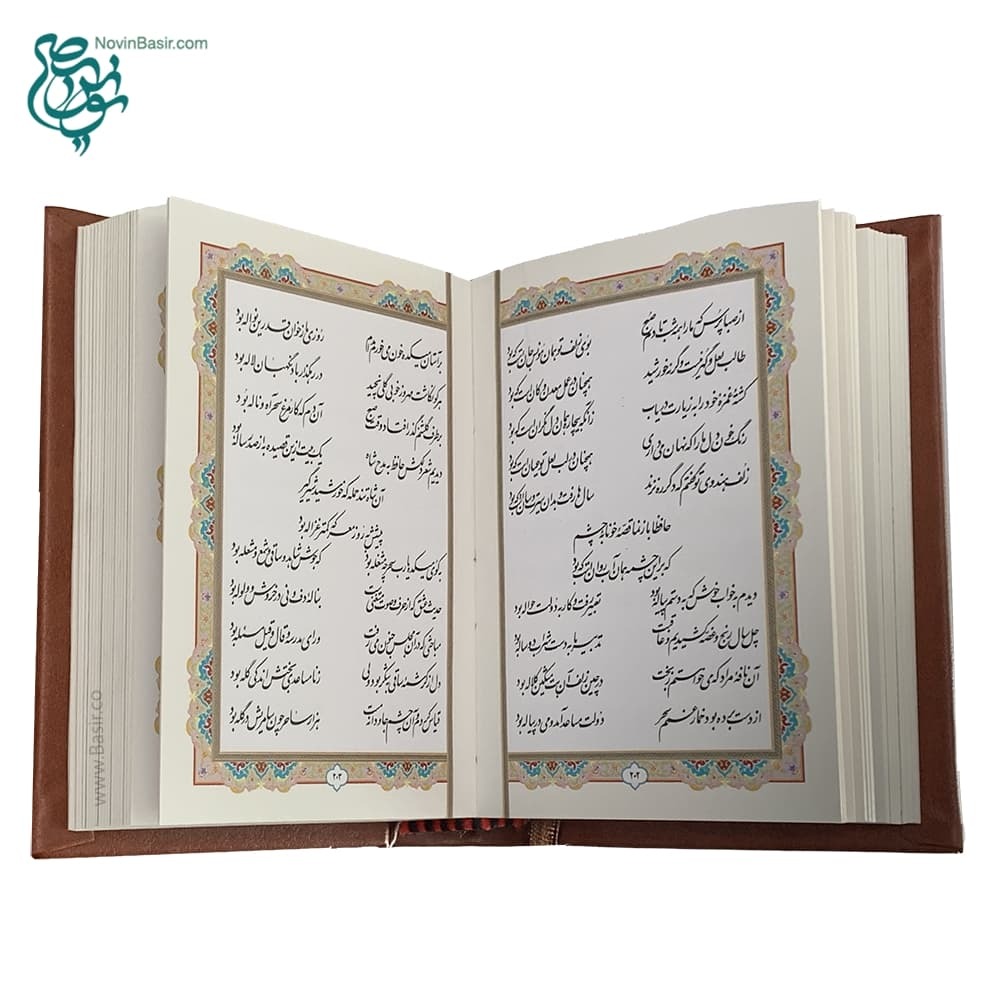 NovinBasir.com
نوین بصیر
از صبا پرس که ما را همه شب تا دم صبح
بوی زلف تو همان مونس جان است که بود
طالب لعل و گهر نیست وگرنه خورشید
همچنان در عمل معدن و کان است که بود
کشته غمزه خود را به زیارت دریاب
زانکه بیچاره همان دل نگران است که بود
رنگ خون دل ما را که نهان می داری
همچنان در لب لعل تو عیان است که بود
زلف هندوی تو گفتم که دگر ره نزند
سال ها رفت و بدان سیرت و سان است که بود
حافظا باز نما قصهٔ خونابه چشم
که بر این چشمه همان آب روان است که بود
دیدم به خواب خوش که به دستم پیاله بود
تعبیر رفت و کار به دولت حواله بود
چل سال رنج و غصه کشیدیم و عاقبت
تدبیر ما به دست شراب دو ساله بود
آن نافهٔ مراد که می خواستم ز بخت
در چین زلف آن بت مشکین کلاله بود
از دست برده بود خمار غمم سحر
دولت مساعد آمد و می در پیاله بود
۲۰۲
بر آستان میکده خون می خورم مدام
روزی ما ز خوان قدر این نواله بود
هر کو نکاشت مهر و ز خوبی گلی نچید
در رهگذار باد نگهبان لاله بود
بر طرف گلشنم گذر افتاد وقت صبح
آن دم که کار مرغ سحر آه و ناله بود
دیدیم شعر دلکش حافظ به مدح شاه
یک بیت ازین قصیده به از صد رساله بود
آن شاه تند حمله که خورشید شیر گیر
پیشش به روز معرکه کمتر غزاله بود
به کوی میکده یا رب سحر چه مشغله بود
که جوش شاهد و ساقی و شمع و مشعله بود
حدیث عشق که از حرف و صوت مستغنی است
به ناله دف و نی در خروش و ولوله بود
مباحثی که در آن مجلس جنون می رفت
ورای مدرسه و قال و قیل مسئله بود
دل از کرشمه ساقی به شکر بود ولی
ز نا مساعدی بختش اندکی گله بود
قیاس کردم و آن چشم جادوانه مست
هزار ساحر چون سامریش در گله بود
۲۰۳
www.Basir.co